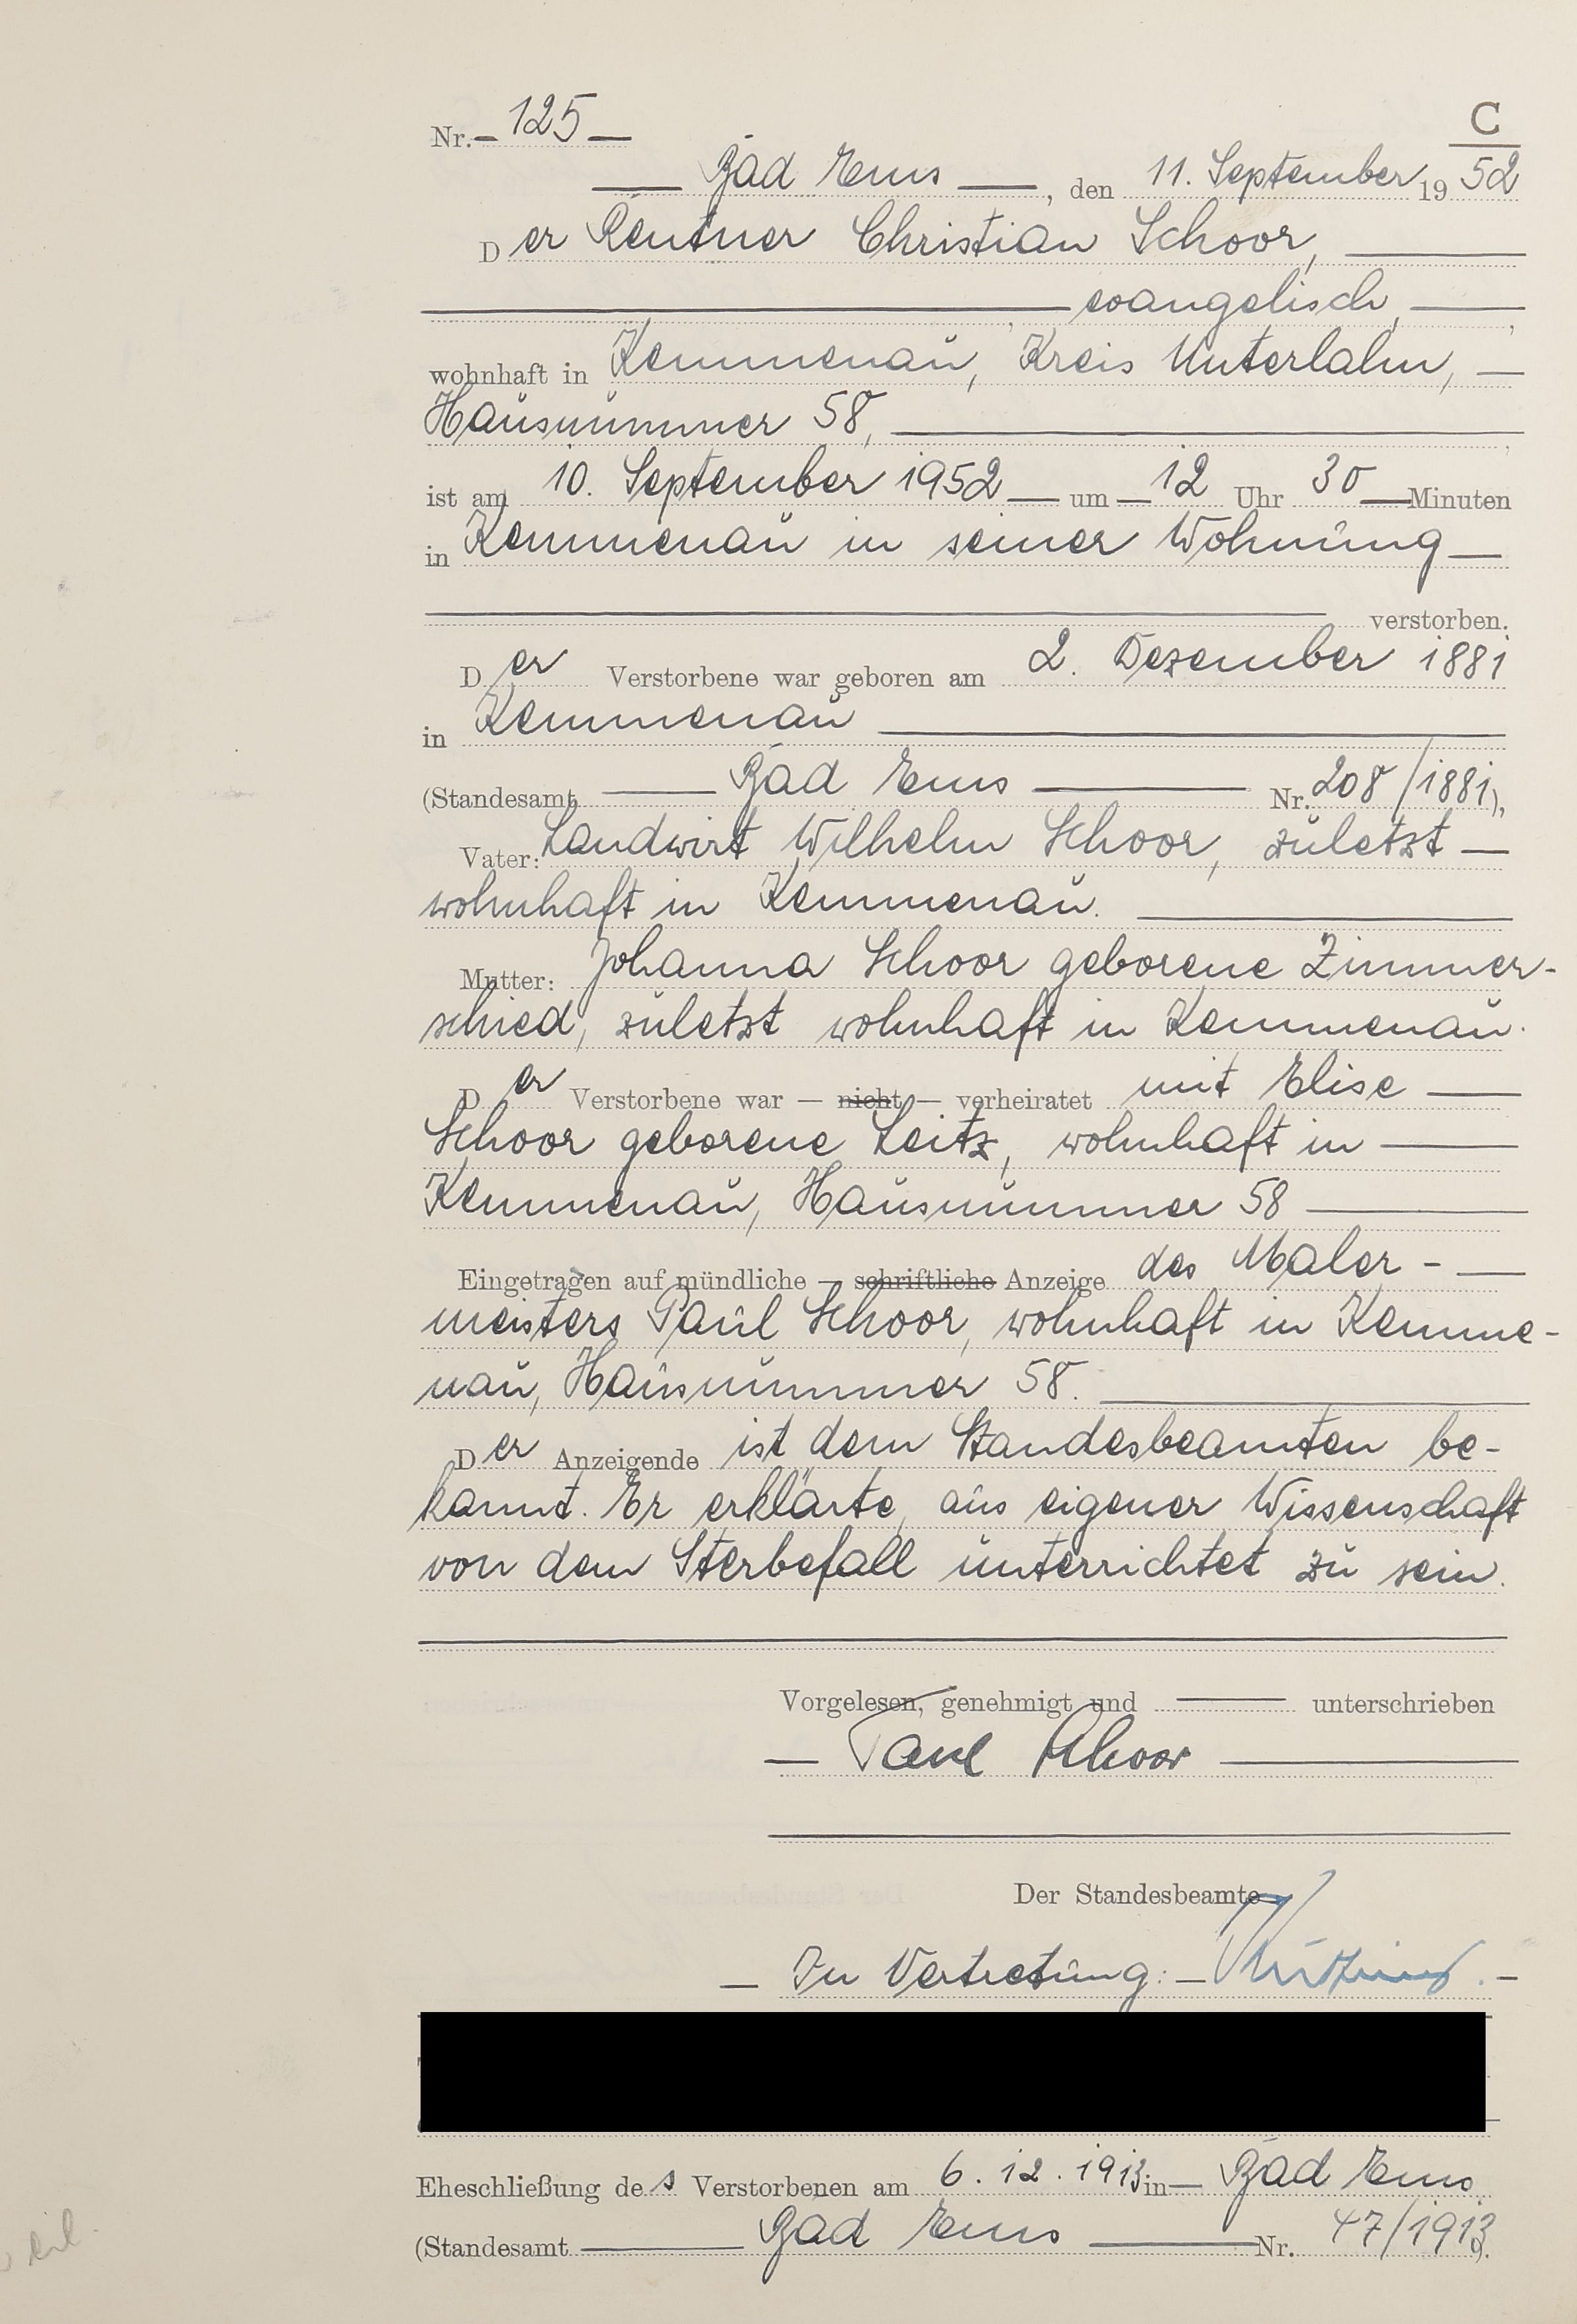 C
Nr. 125
Bad Ems, den 11. September 1952
Der Rentner Christian Schoor,
evangelisch,
wohnhaft in Kemmenau, Kreis Unterlahn,
Hausnummer 58,
ist am 10. September 1952 um 12 Uhr 30 Minuten
in Kemmenau in seiner Wohnung
verstorben.
Der Verstorbene war geboren am 2. Dezember 1881
in Kemmenau
(Standesamt Bad Ems Nr. 208/1881),
Vater: Landwirt Wilhelm Schoor, zuletzt
wohnhaft in Kemmenau.
Mutter: Johanna Schoor geborene Zimmer-
schied, zuletzt wohnhaft in Kemmenau.
Der Verstorbene war — nicht — verheiratet mit Elise
Schoor geborene Leitz, wohnhaft in
Kemmenau, Hausnummer 58
Eingetragen auf mündliche — schriftliche Anzeige des Maler-
meisters Paul Schoor, wohnhaft in Kemme-
nau, Hausnummer 58.
Der Anzeigende ist dem Standesbeamten be-
kannt. Er erklärte, aus eigener Wissenschaft
von dem Sterbefall unterrichtet zu sein.
Vorgelesen, genehmigt und unterschrieben
Paul Schoor
Der Standesbeamte
In Vertretung:
Eheschließung des Verstorbenen am 6.12.1913 in Bad Ems
(Standesamt Bad Ems Nr. 47/1913).